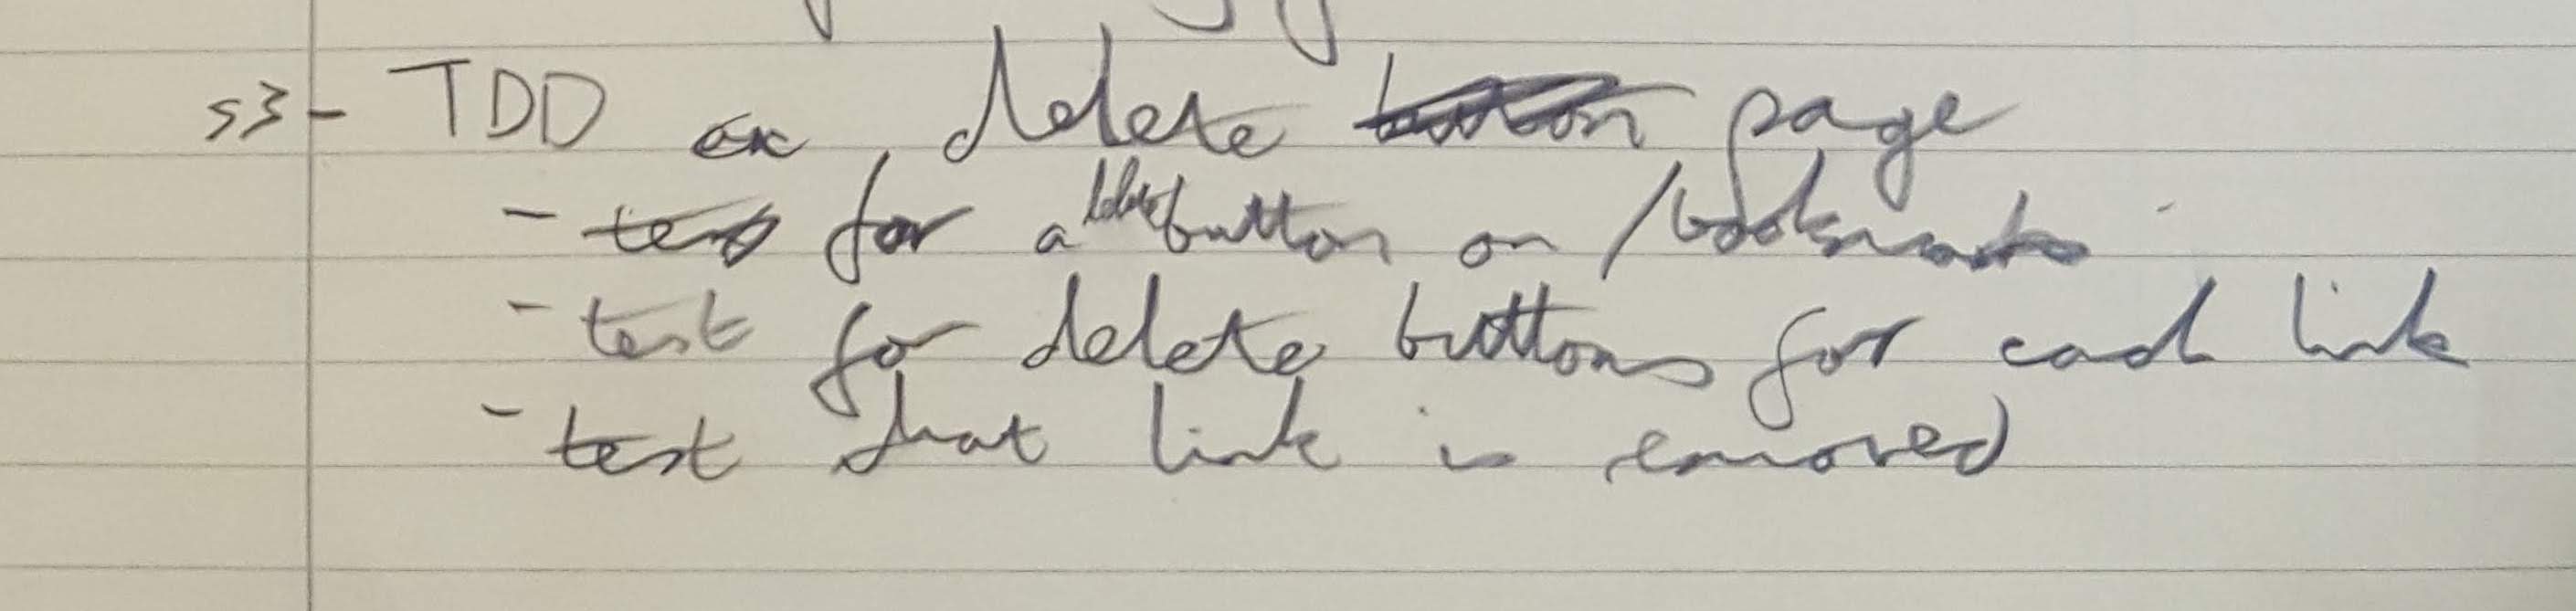 s3- TDD a delete page
- test for a delete button on /bookmarks
- test for delete buttons for each link
- test that link is removed